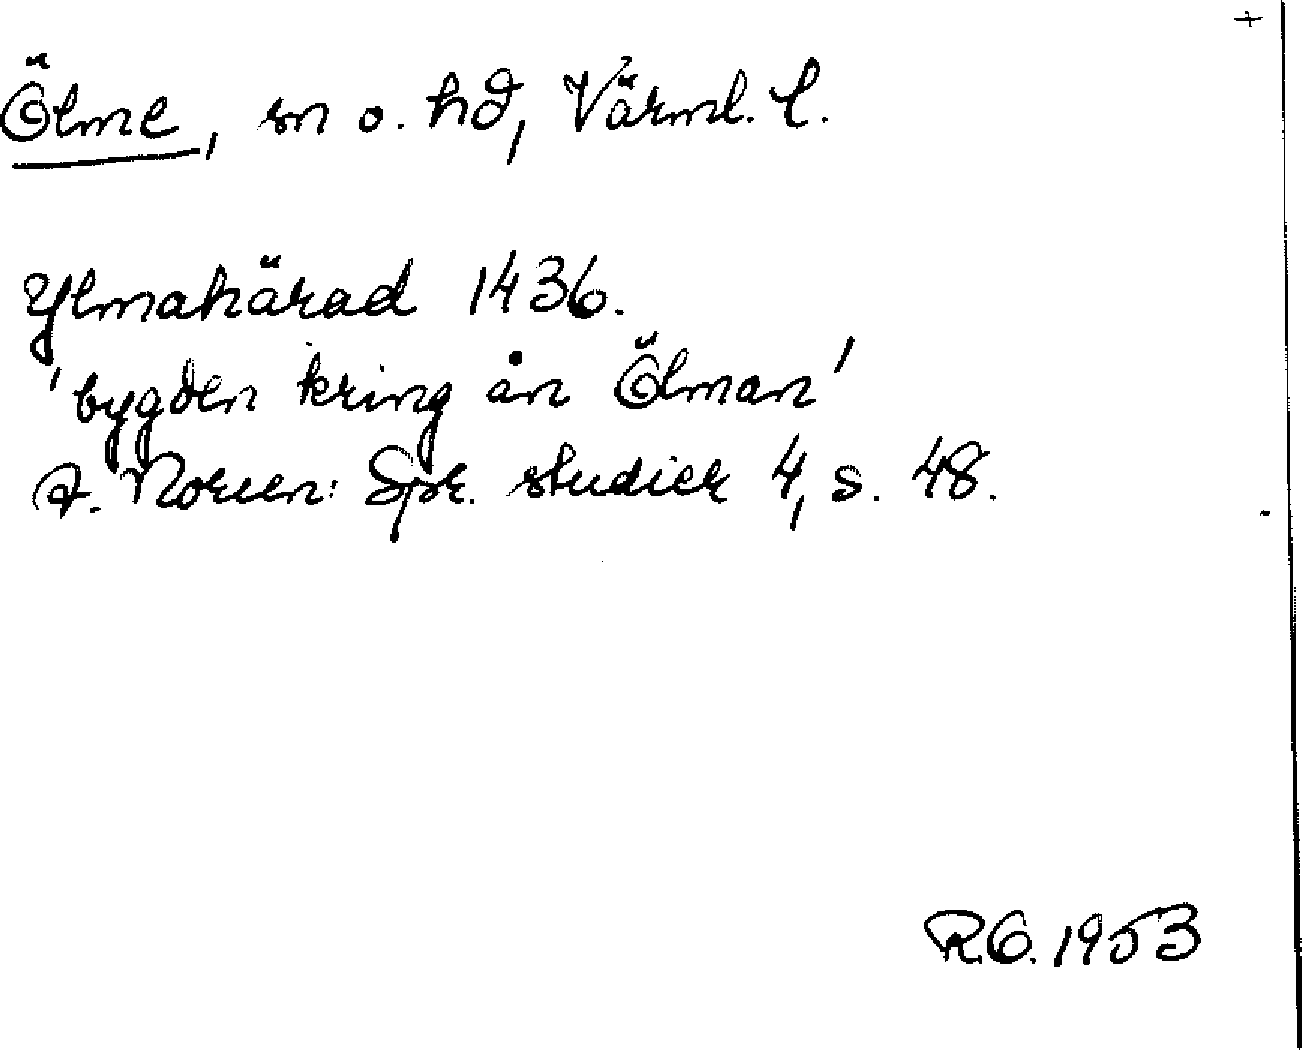 +
Ölme, sn o. hd, Värml. l.
Ylmahärad 1436.
'bygden kring ån Ölman'
A. Noreen: Spr. studier 4, s. 48.
R.O. 1953